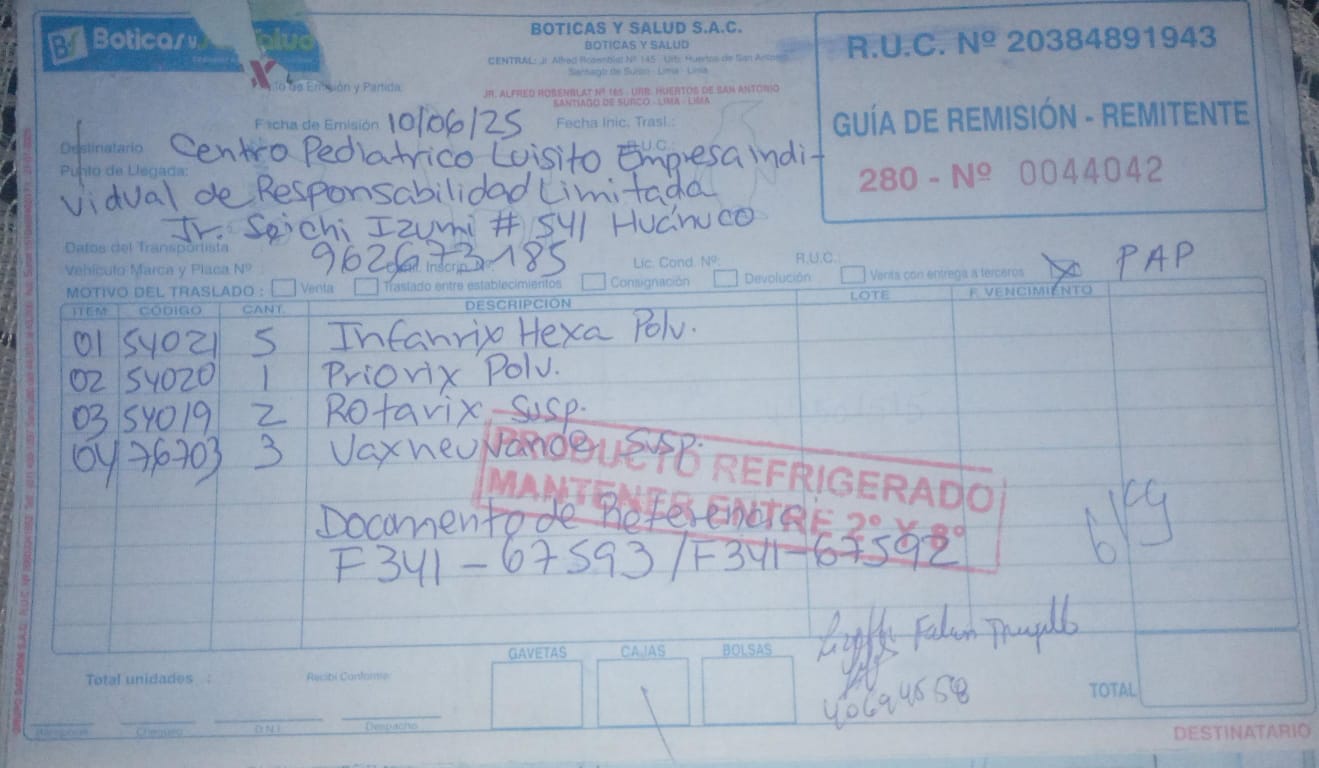 Boticas y Salud
BOTICAS Y SALUD S.A.C.
BOTICAS Y SALUD
CENTRAL: Jr. Alfred Rosenblat Nº 145 Urb. Huertos de San Antonio
Santiago de Surco - Lima - Lima
JR. ALFRED ROSENBLAT Nº 165 - URB. HUERTOS DE SAN ANTONIO
SANTIAGO DE SURCO - LIMA - LIMA
R.U.C. Nº 20384891943
GUÍA DE REMISIÓN - REMITENTE
280 - Nº 0044042
X
de Emisión y Partida:
Fecha de Emisión 10/06/25 Fecha Inic. Trasl.:
Destinatario Centro Pediatrico Luisito Empresa indi-
R.U.C.
Punto de Llegada:
vidual de Responsabilidad Limitada
Jr. Seichi Izumi # 541 Huánuco
Datos del Transportista
962673185
Vehículo Marca y Placa Nº : Inscrip. Nº Lic. Cond. Nº: R.U.C.:
MOTIVO DEL TRASLADO : Venta Traslado entre establecimientos Consignación Devolución Venta con entrega a terceros X PAP
ITEM CÓDIGO CANT. DESCRIPCIÓN LOTE F. VENCIMIENTO
01 54021 5 Infanrix Hexa Polv.
02 54020 1 Priorix Polv.
03 54019 2 Rotarix Susp.
04 76703 3 Vaxneuvance Susp.
PRODUCTO REFRIGERADO
MANTENER ENTRE 2° Y 8°
Documento de Referencia
F341-67593/F341-67592
6kg
Falcon Trujillo
40694558
GAVETAS CAJAS BOLSAS
Total unidades : Recibí Conforme
TOTAL
Chequeo D.N.I. Despacho
DESTINATARIO